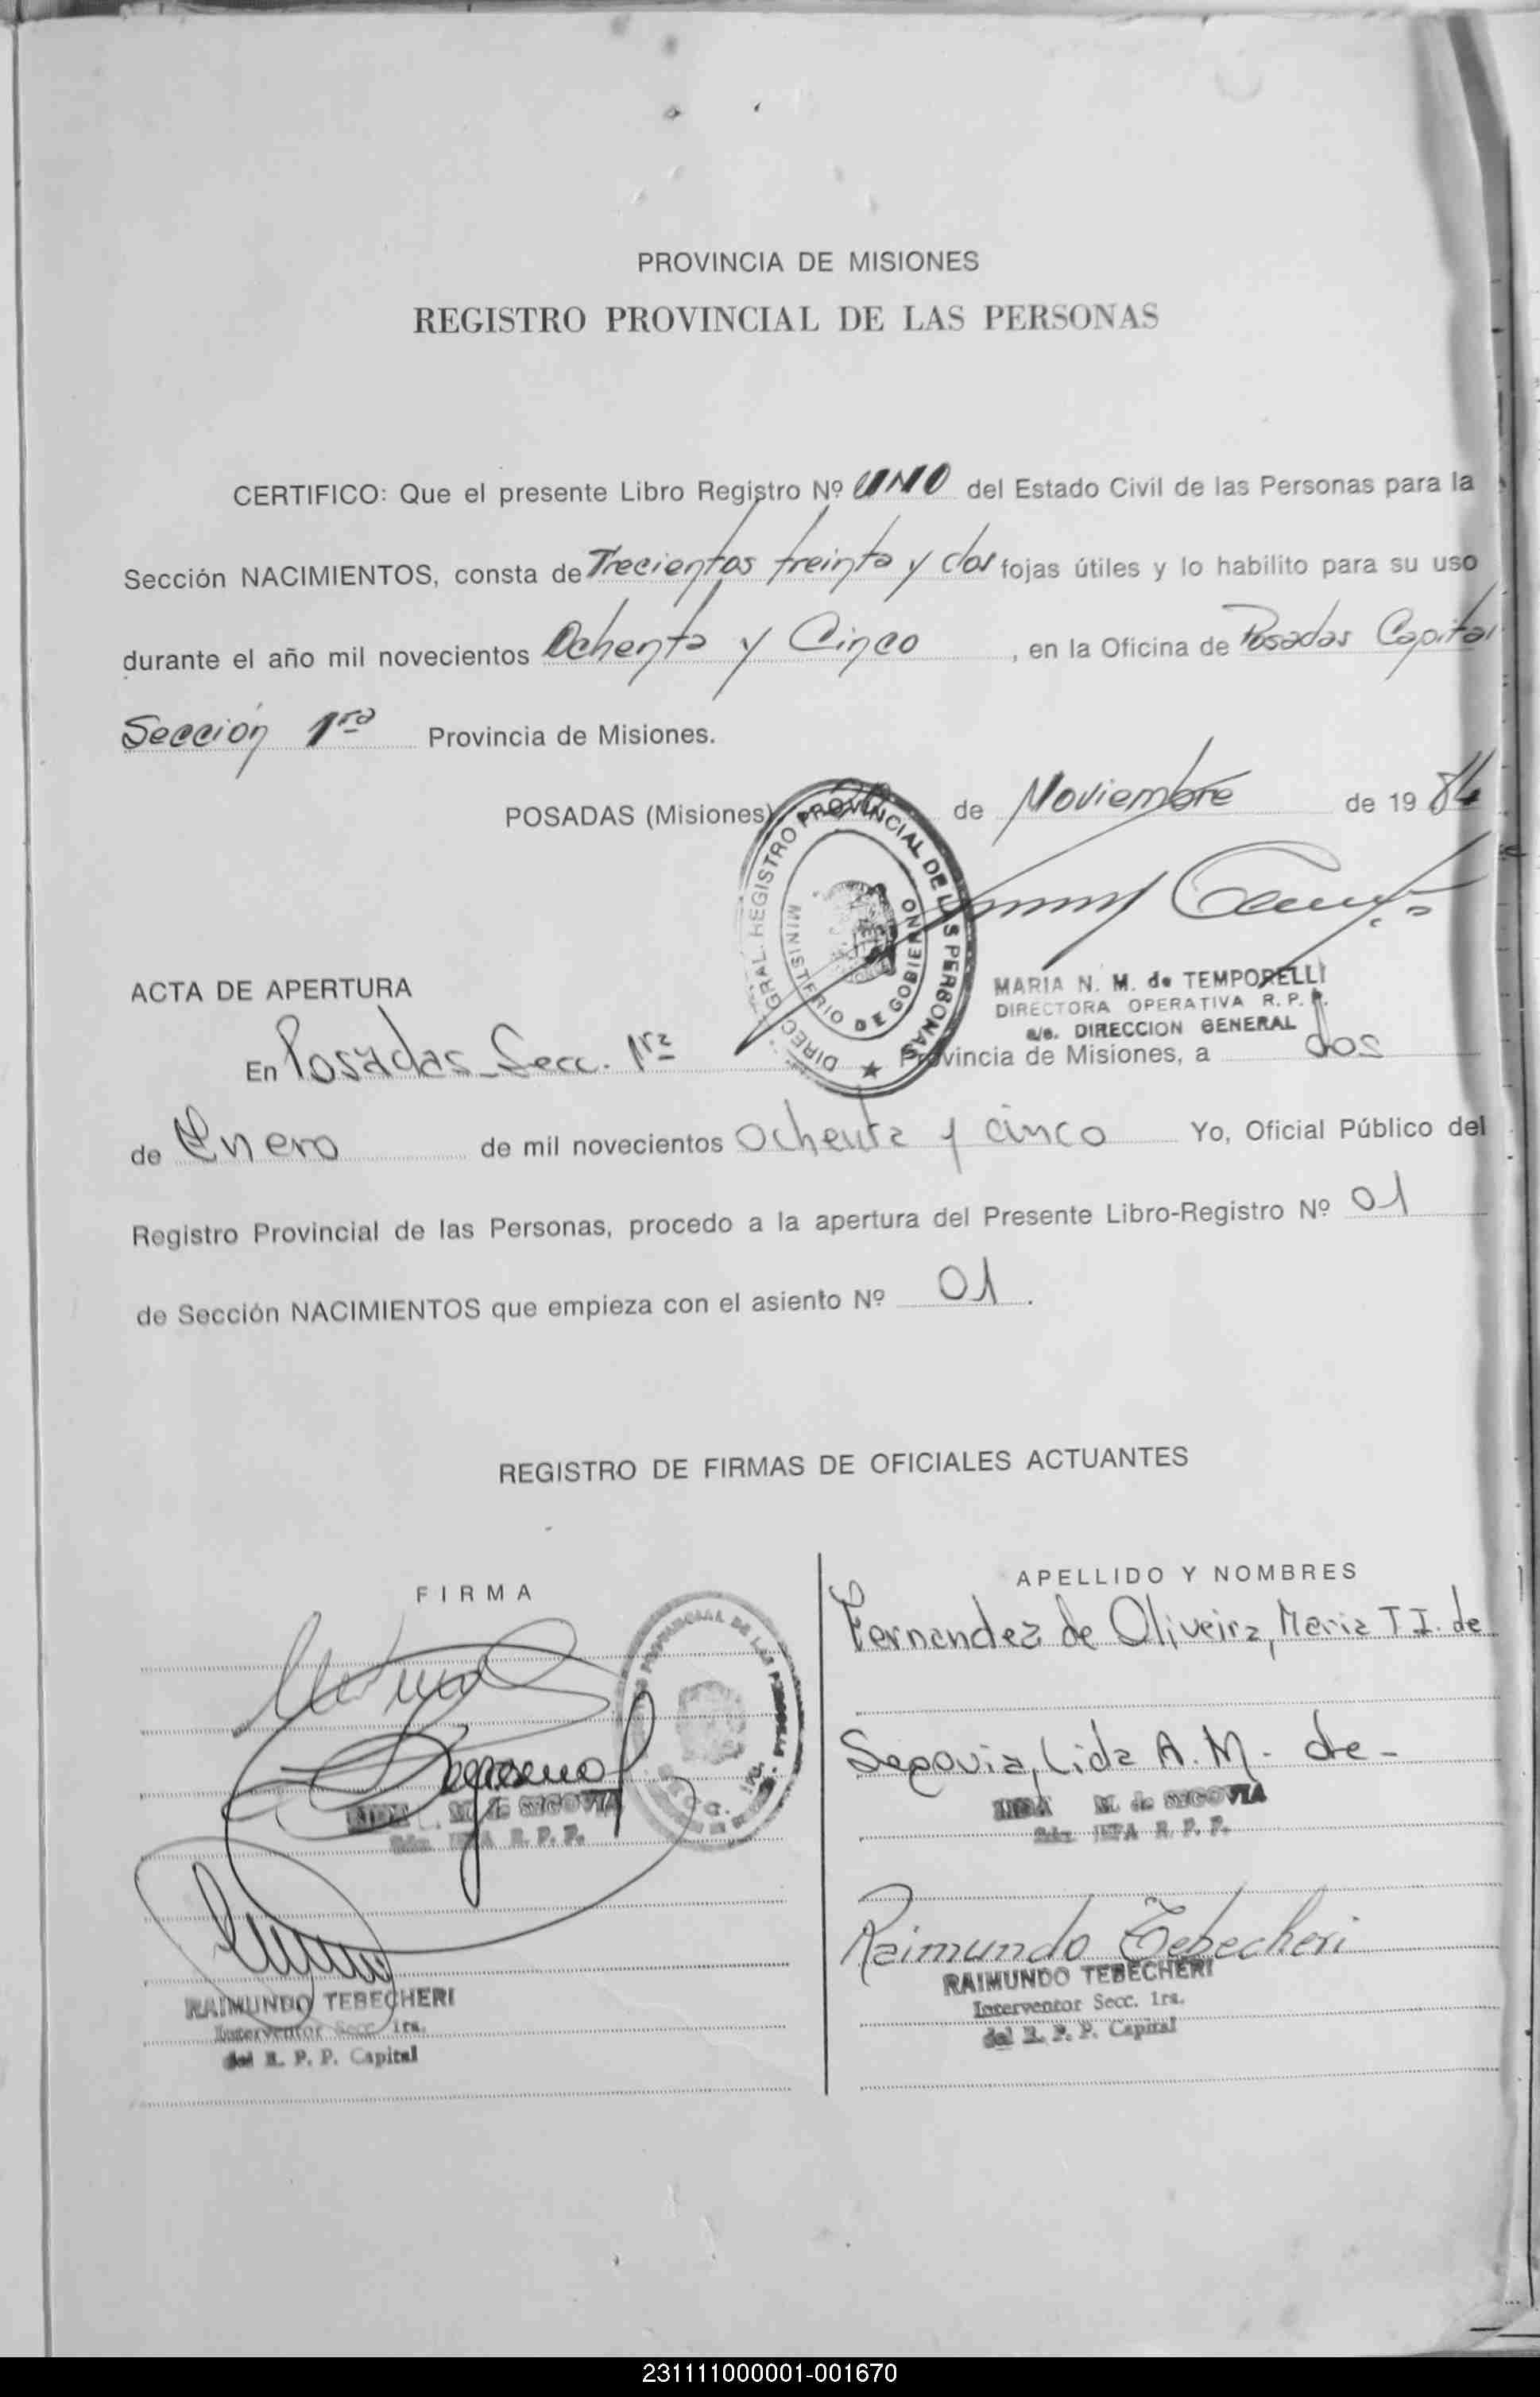 PROVINCIA DE MISIONES
REGISTRO PROVINCIAL DE LAS PERSONAS
CERTIFICO: Que el presente Libro Registro Nº UNO del Estado Civil de las Personas para la
Sección NACIMIENTOS, consta de Trecientos treinta y dos fojas útiles y lo habilito para su uso
durante el año mil novecientos Ochenta y Cinco, en la Oficina de Posadas Capital
Sección 1ra Provincia de Misiones.
POSADAS (Misiones), de Noviembre de 1984
DIREC. GRAL. REGISTRO PROVINCIAL DE LAS PERSONAS
MINISTERIO DE GOBIERNO
MARIA N. M. de TEMPORELLI
DIRECTORA OPERATIVA R. P. P.
a/c. DIRECCION GENERAL
ACTA DE APERTURA
En Posadas - Secc. 1ra Provincia de Misiones, a dos
de Enero de mil novecientos ochenta y cinco Yo, Oficial Público del
Registro Provincial de las Personas, procedo a la apertura del Presente Libro-Registro Nº 01
de Sección NACIMIENTOS que empieza con el asiento Nº 01.
REGISTRO DE FIRMAS DE OFICIALES ACTUANTES
FIRMA
APELLIDO Y NOMBRES
Fernandez de Oliveira, Maria T I. de
PROVINCIAL DE LAS PERSONAS
SECC. 1ra.
Segovia, Lida A. M. de -
M. de SEGOVIA
R. P. P.
LIDA M. de SEGOVIA
R. P. P.
Raimundo Tebecheri
RAIMUNDO TEBECHERI
Interventor Secc. 1ra.
del R. P. P. Capital
RAIMUNDO TEBECHERI
Interventor Secc. 1ra.
del R. P. P. Capital
231111000001-001670